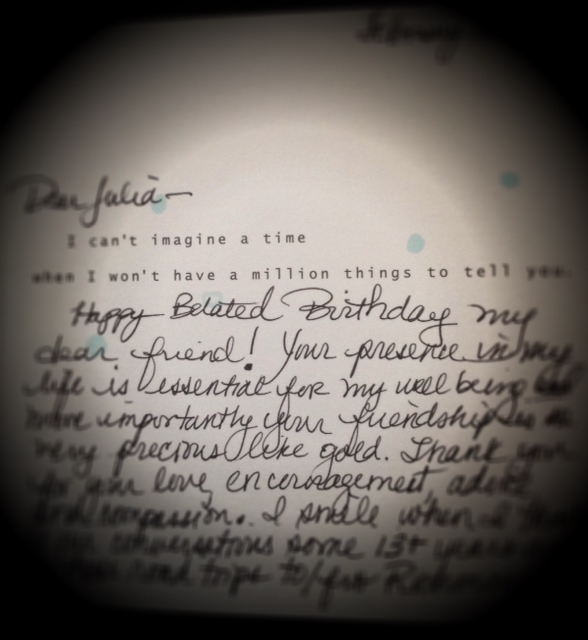 February
Dear Julia—
I can't imagine a time
when I won't have a million things to tell you.
Happy Belated Birthday my
dear friend! Your presence in my
life is essential for my well being
more importantly your friendship is
very precious like gold. Thank you
for your love, encouragement, advice
and compassion. I smile when I
our conversations some 13+ years
road trips to/fro